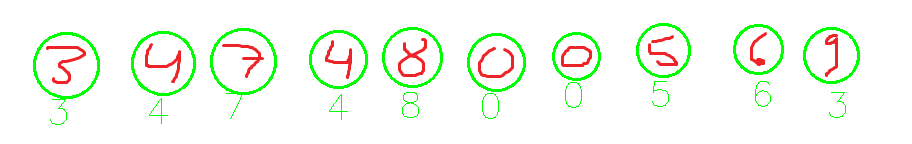 3 4 7 4 8 0 0 5 6 9
3 4 7 4 8 0 0 5 6 3